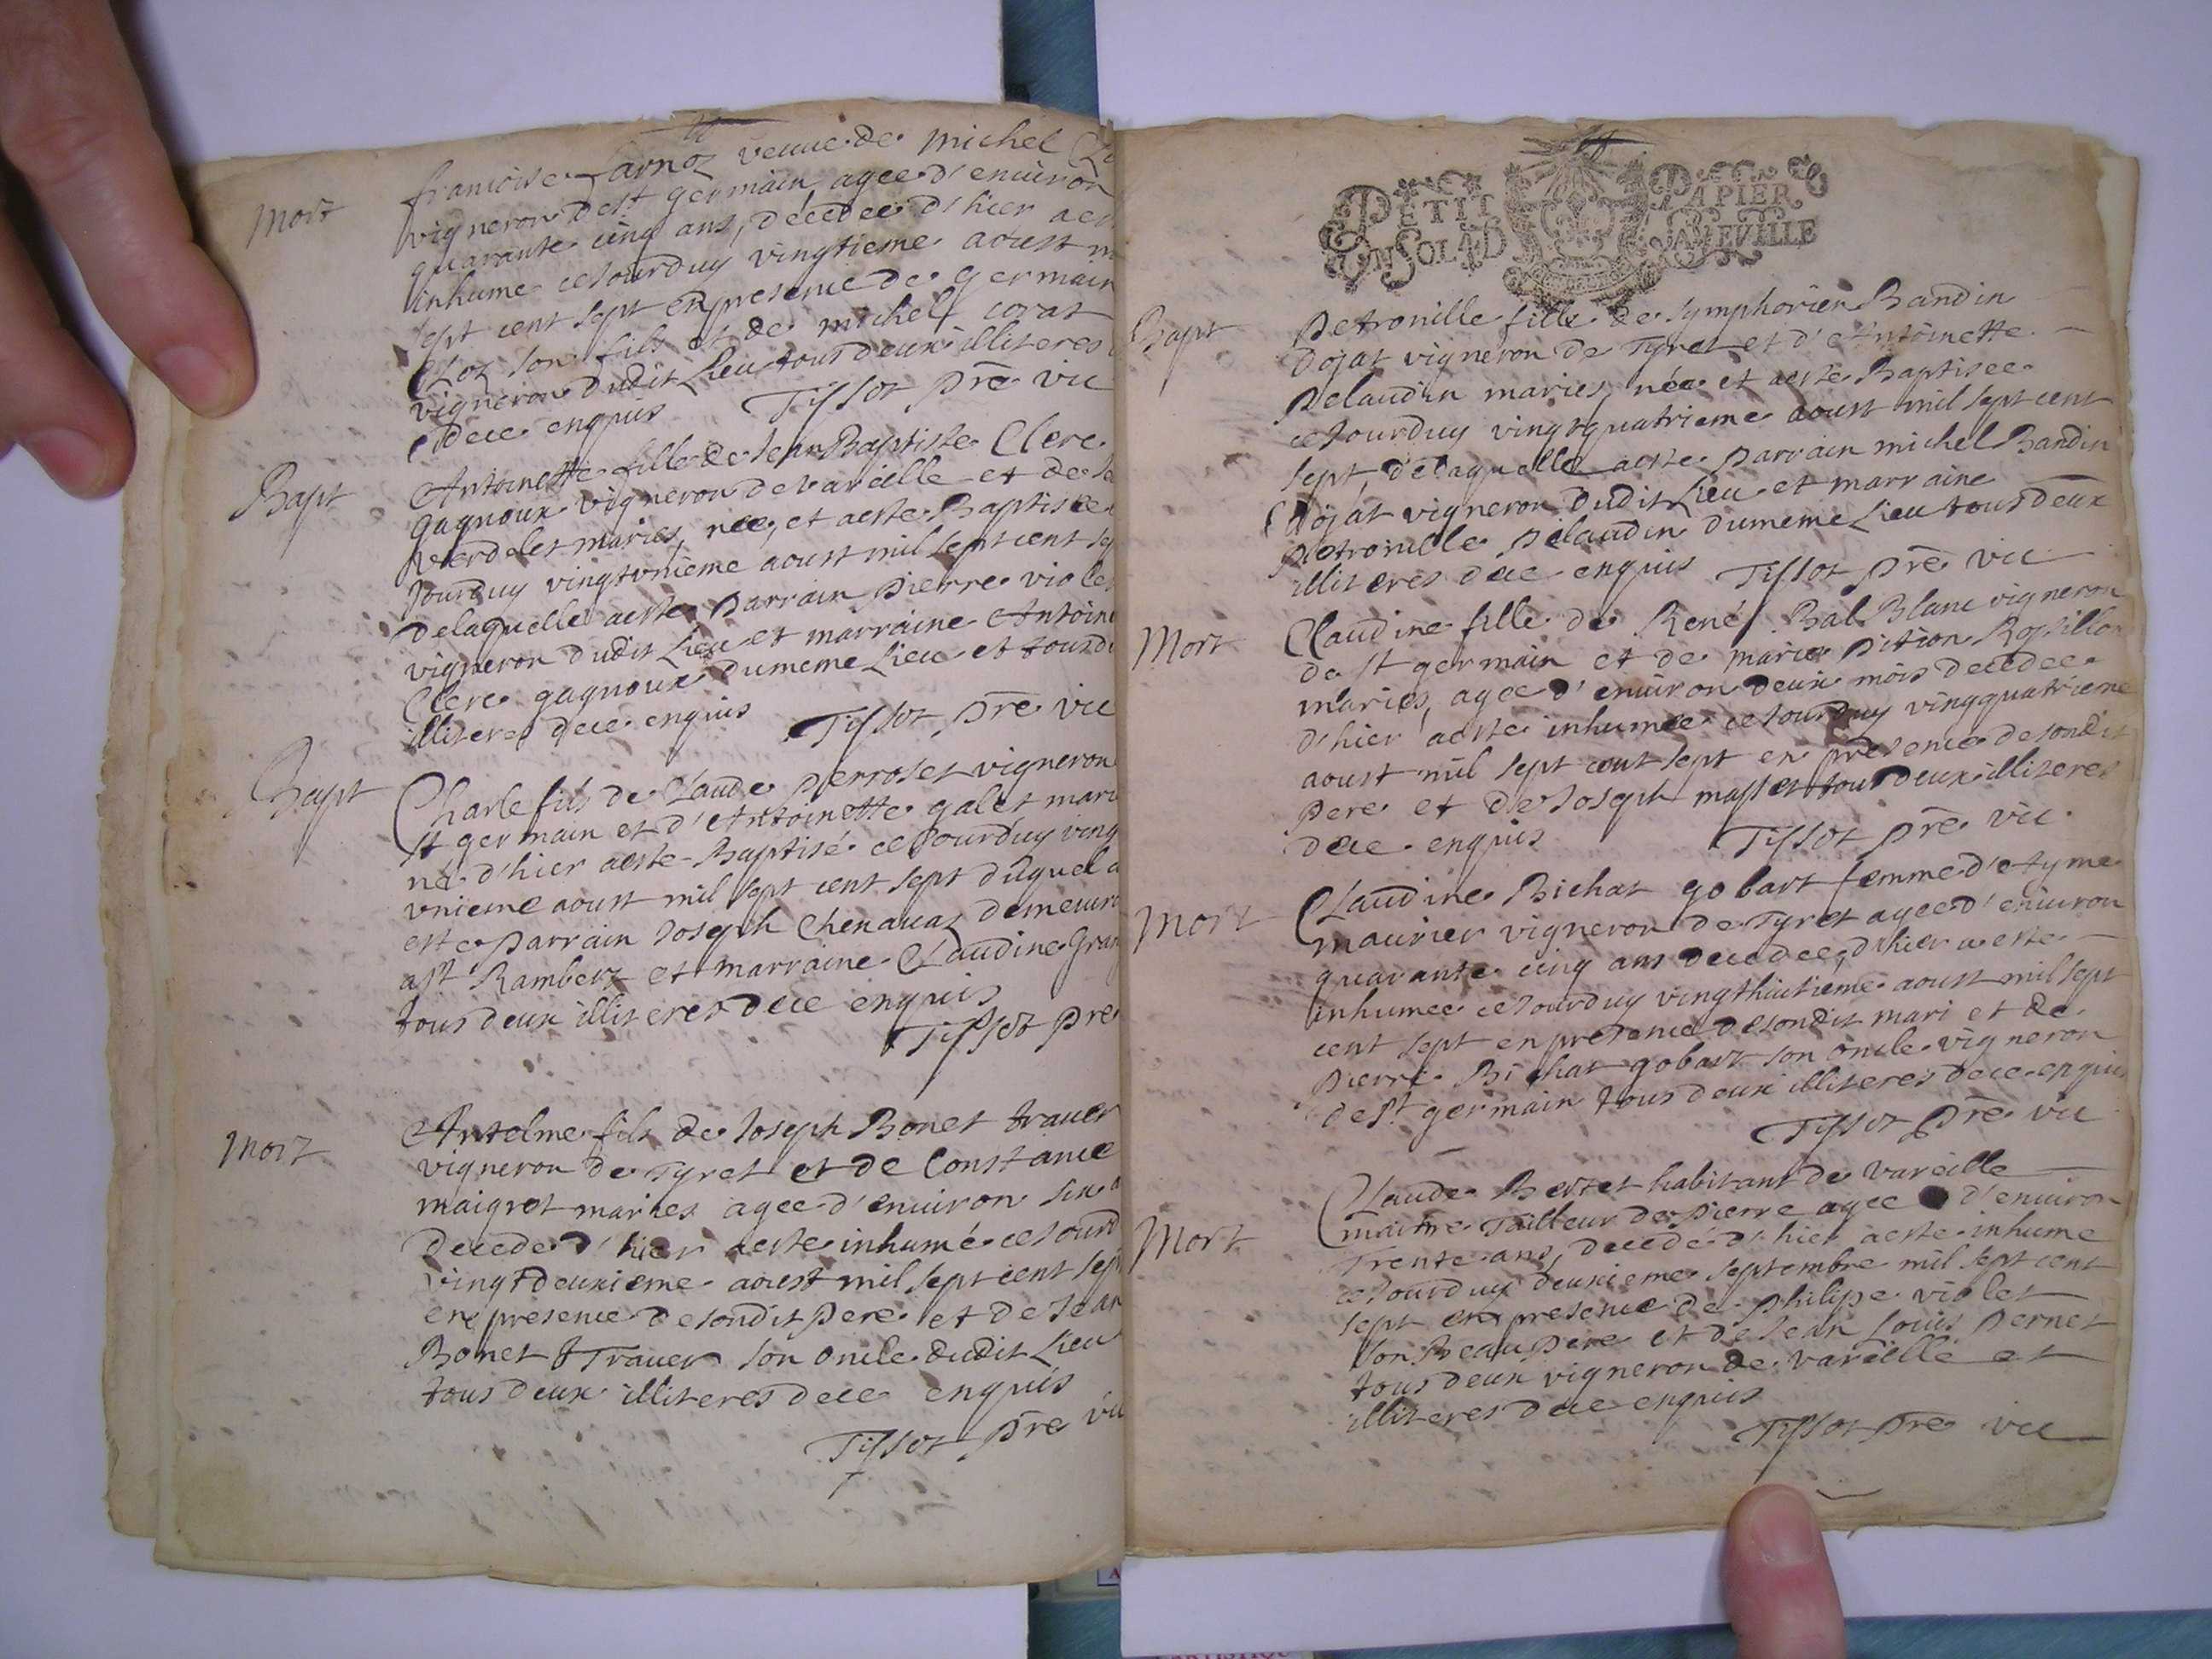 Mort
francoise Larnoz veuue de Michel
vigneron de st germain agee d'enuiron
quarante cinq ans, décedee d'hier a
inhume ce Jourduy vingtieme aoust
sept cent sept en presence de germain
Cloz son fils et de michel corat
vigneron dudit Lieu tous deux illiteres
de ce enquis Tissot pre vic
Bapt
Antoinette fille de Jean Baptiste Clerc
gagnoux vigneron de vareille et de
verdelet maries, nee, et aeste Baptisee
Jourduy vingtvnieme aoust mil sept cent
delaquelle aeste parrain pierre violet
vigneron dudit Lieu et marraine
Clerc gagnoux dumeme Lieu et tous
illiteres de ce enquis Tissot pre vic
Bapt
Charle fils de Claude perroset vigneron
st germain et d'Antoinette galet
né d'hier aeste Baptisé ce Jourduy
vnieme aoust mil sept cent sept duquel a
este parrain Joseph Chenauaz
a st Rambert et marraine Claudine
tous deux illiteres de ce enquis
Tissot pre
Mort
Antelme fils de Joseph Bonet trauer
vigneron de Tyret et de Constance
maigrot maries agee d'enuiron six
decede d'hier aeste inhumé ce
vingtdeuxieme aoust mil sept cent sept
en presence de sondit pere et de Jean
Bonet Trauer son oncle dudit Lieu
tous deux illiteres de ce enquis
Tissot pre vic
PETIT PAPIER
UN SOL 4 D LA FEVILLE
Bapt
petronille fille de symphorien Bandin
Dojat vigneron de Tyret et d'Antoinette
pelaudin maries, née et aeste Baptisee
ce Jourduy vingtquatrieme aoust mil sept cent
sept, delaquelle aeste parrain michel Bandin
Dojat vigneron dudit Lieu et marraine
petronille pelaudin dumeme Lieu tous deux
illiteres de ce enquis Tissot pre vic
Mort
Claudine fille de René Bal Blanc vigneron
de st germain et de marie pition Rossillon
maries, agee d'enuiron deux mois decedee
d'hier aeste inhumee ce Jourduy vingquatrieme
aoust mil sept cent sept en presence de sondit
pere et de Joseph masset tous deux illiteres
de ce enquis Tissot pre vic
Mort
Claudine Bichat gobart femme d'Ayme
maurier vigneron de Tyret agee d'enuiron
quarante cinq ans decedee, d'hier a este
inhumee ce Jourduy vingthuitieme aoust mil sept
cent sept en presence de sondit mari et de
pierre Bichat gobart son oncle vigneron
de st germain tous deux illiteres de ce enquis
Tissot pre vic
Mort
Claude Bertet habitant de vareille
maitre Tailleur de pierre agee d'enuiron
Trente ans, decedé d'hier aeste inhume
ce Jourduy deuxieme septembre mil sept cent
sept en presence de philipe violet
son Beau pere et de Jean Louis pernet
tous deux vigneron de vareille et
illiteres de ce enquis
Tissot pre vic